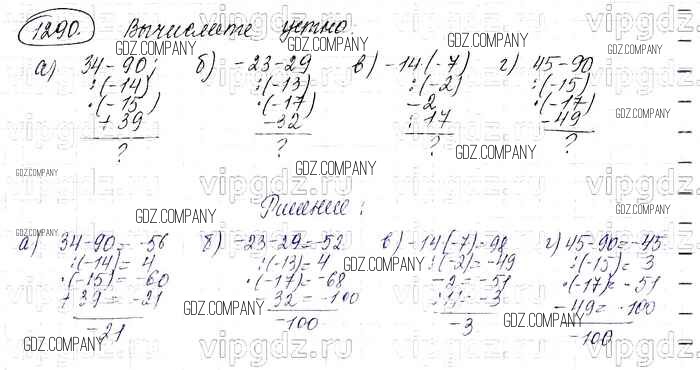 1290. Вычислите устно:
а) 34-90; б) -23-29 в) -14·(-7) г) 45-90
:(-14) :(-13) :(-2) :(-15)
·(-15) ·(-17) -2 ·(-17)
+39 -32 :17 -49
? ? ? ?
Решение:
а) 34-90=-56 б) -23-29=-52 в) -14·(-7)=98 г) 45-90=-45
:(-14)=4 :(-13)=4 :(-2)=-49 :(-15)=3
·(-15)=-60 ·(-17)=-68 -2=-51 ·(-17)=-51
+39=-21 -32=-100 :17=-3 -49=-100
-21 -100 -3 -100
GDZ.COMPANY
vipgdz.ru